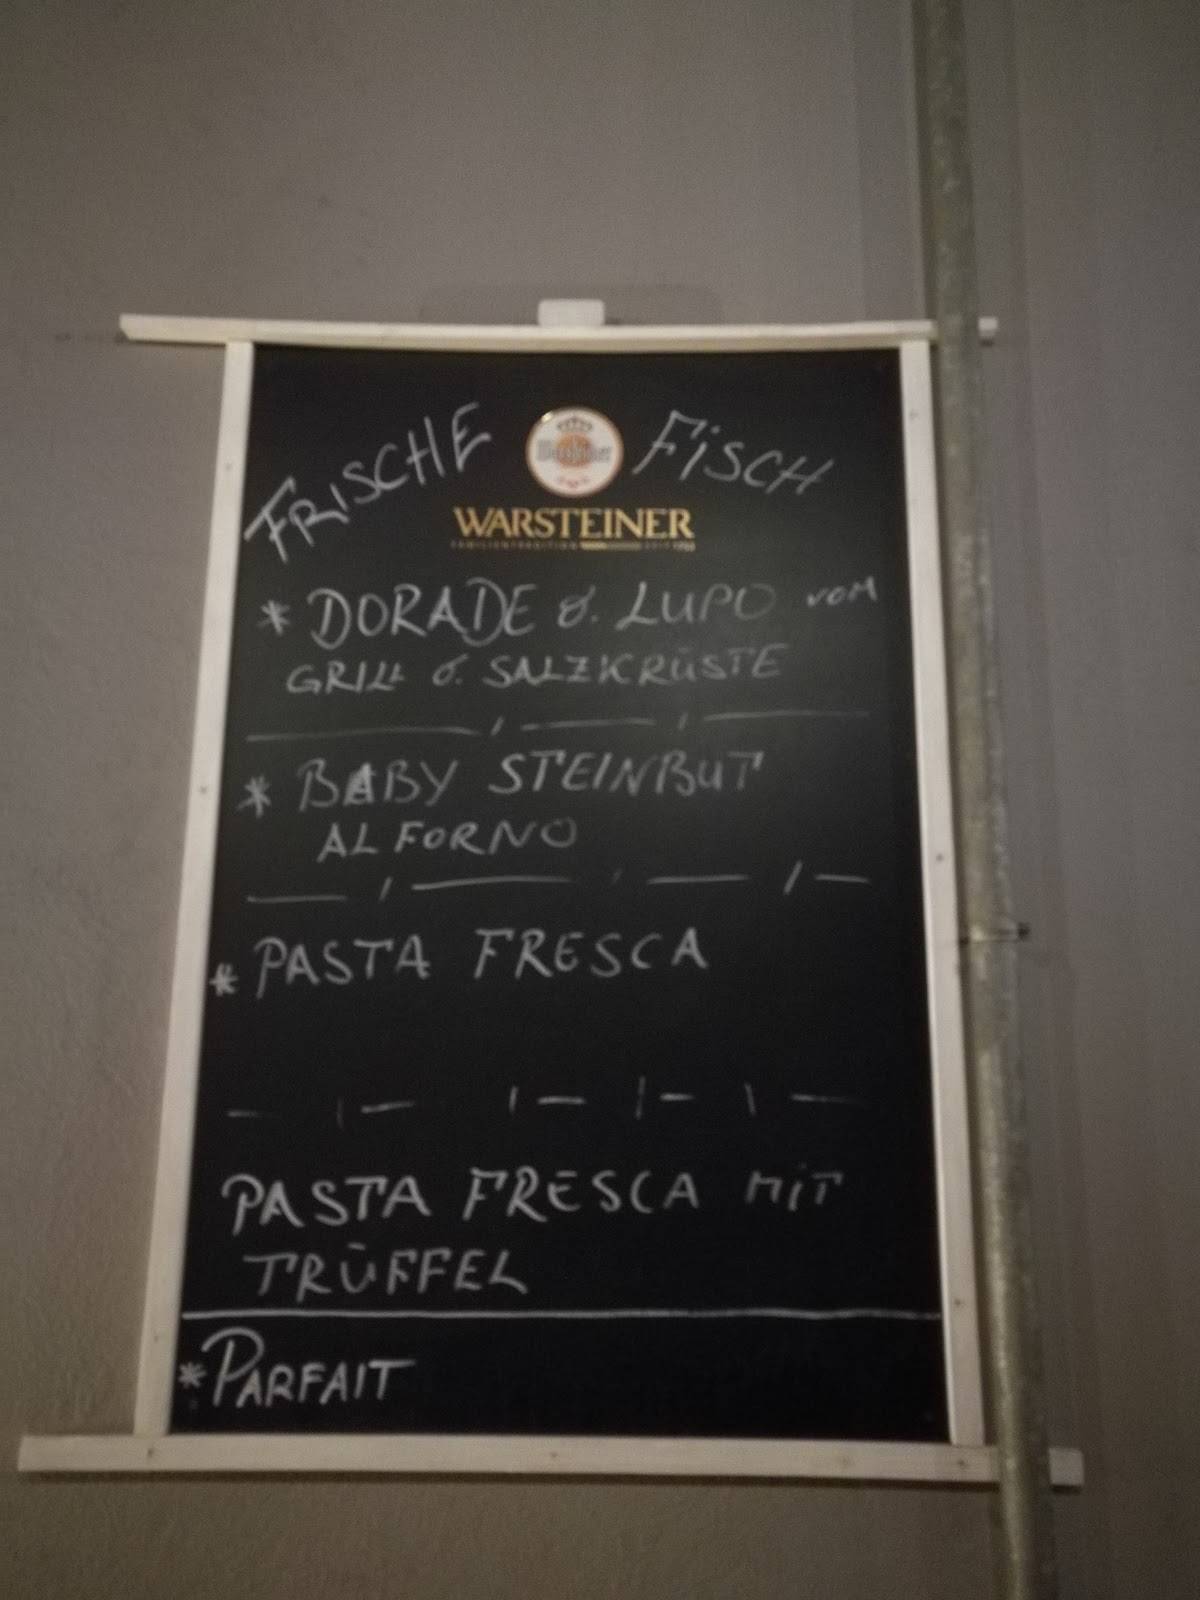 FRISCHE FISCH
WARSTEINER
* DORADE o. LUPO VOM
GRILL o. SALZKRÜSTE
* BABY STEINBUT
AL FORNO
* PASTA FRESCA
PASTA FRESCA MIT
TRÜFFEL
* PARFAIT